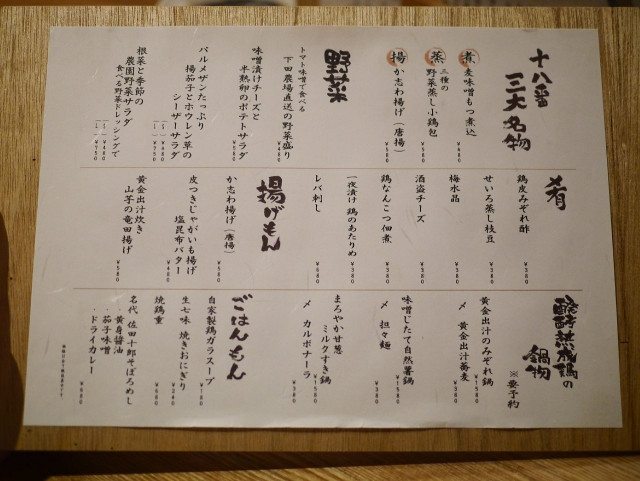 十八番
三大名物
煮 麦味噌もつ煮込
¥480
蒸 三種の
野菜蒸し小鶏包
¥380
揚 か志わ揚げ(唐揚)
¥580
野菜
トマト味噌で食べる
下田農場直送の野菜盛り
¥480
味噌漬けチーズと
半熟卵のポテトサラダ
¥580
パルメザンたっぷり
揚茄子とホウレン草の
シーザーサラダ
根菜と季節の
農園野菜サラダ
食べる野菜ドレッシングで
肴
鶏皮みぞれ酢
¥380
せいろ蒸し枝豆
¥380
梅水晶
¥380
酒盗チーズ
¥380
鶏なんこつ佃煮
¥380
一夜漬け 鶏のあたりめ
¥380
レバ刺し
¥680
揚げもん
か志わ揚げ(唐揚)
¥580
皮つきじゃがいも揚げ
塩昆布バター
¥480
黄金出汁炊き
山芋の竜田揚げ
¥580
醗酵熟成鶏の
鍋物
※要予約
黄金出汁のみぞれ鍋
¥1580
〆 黄金出汁蕎麦
¥380
味噌じたて自然薯鍋
¥1580
〆 担々麺
¥380
まろやか甘葱
ミルクすき鍋
¥1580
〆 カルボナーラ
¥380
ごはんもん
自家製鶏ガラスープ
¥180
生七味 焼きおにぎり
¥380
焼鶏重
名代 佐田十郎そぼろめし
・黄身醤油
・茄子味噌
・ドライカレー
¥680